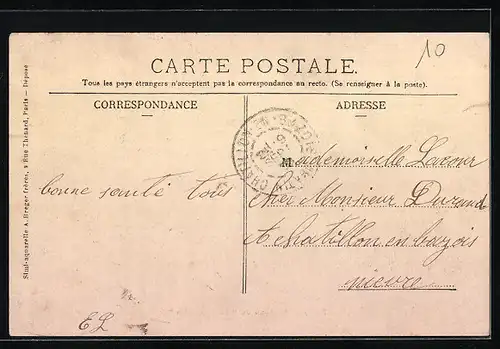 10
CARTE POSTALE.
Tous les pays étrangers n'acceptent pas la correspondance au recto. (Se renseigner à la poste).
CORRESPONDANCE
ADRESSE
Mademoiselle Lacour
bonne santé tous
cher Monsieur Durand
A chatillon en bazois
nievre
EL
Simi-aquarelle A. Breger Frères, 9 Rue Thénard, Paris — Déposé